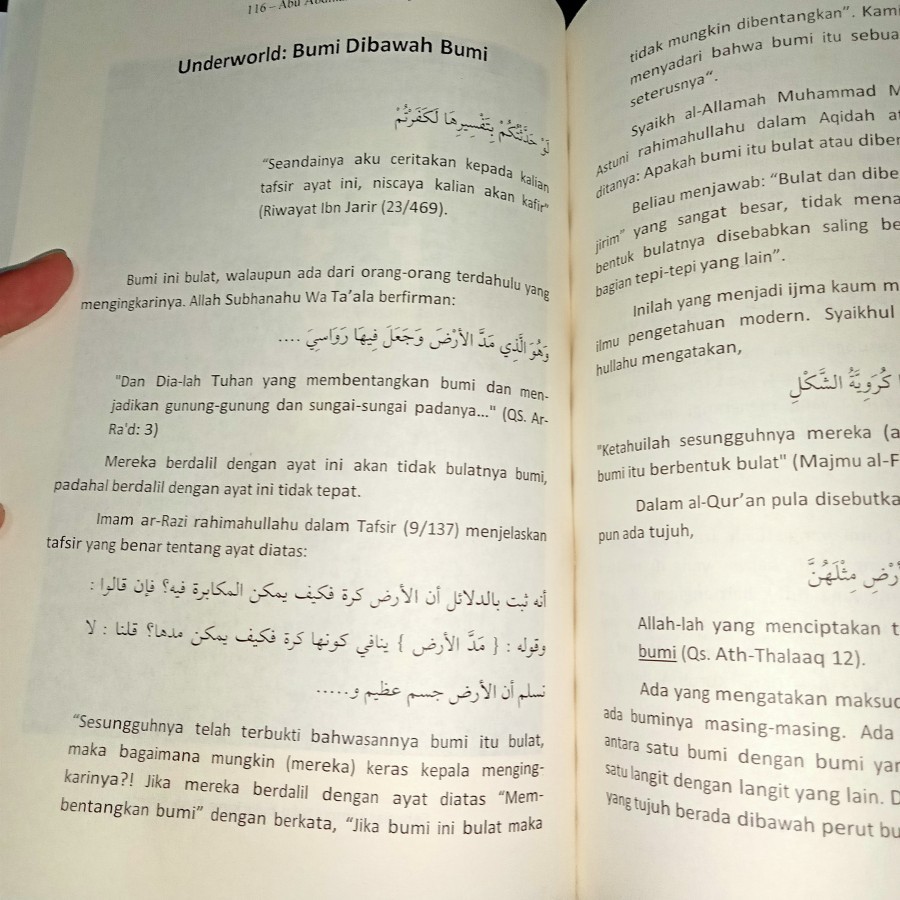 116 – Abu
Underworld: Bumi Dibawah Bumi
لَوْ حَدَّثْتُكُمْ بِتَفْسِيرِهَا لَكَفَرْتُمْ
“Seandainya aku ceritakan kepada kalian
tafsir ayat ini, niscaya kalian akan kafir”
(Riwayat Ibn Jarir (23/469).
Bumi ini bulat, walaupun ada dari orang-orang terdahulu yang
mengingkarinya. Allah Subhanahu Wa Ta’ala berfirman:
وَهُوَ الَّذِي مَدَّ الأَرْضَ وَجَعَلَ فِيهَا رَوَاسِيَ ....
"Dan Dia-lah Tuhan yang membentangkan bumi dan men-
jadikan gunung-gunung dan sungai-sungai padanya..." (QS. Ar-
Ra'd: 3)
Mereka berdalil dengan ayat ini akan tidak bulatnya bumi,
padahal berdalil dengan ayat ini tidak tepat.
Imam ar-Razi rahimahullahu dalam Tafsir (9/137) menjelaskan
tafsir yang benar tentang ayat diatas:
أنه ثبت بالدلائل أن الأرض كرة فكيف يمكن المكابرة فيه؟ فإن قالوا :
وقوله : { مَدَّ الأرض } ينافي كونها كرة فكيف يمكن مدها؟ قلنا : لا
نسلم أن الأرض جسم عظيم و.....
“Sesungguhnya telah terbukti bahwasannya bumi itu bulat,
maka bagaimana mungkin (mereka) keras kepala menging-
karinya?! Jika mereka berdalil dengan ayat diatas “Mem-
bentangkan bumi” dengan berkata, “Jika bumi ini bulat maka
tidak mungkin dibentangkan”. Kami
menyadari bahwa bumi itu
seterusnya“.
Syaikh al-Allamah Muhammad
Astuni rahimahullahu dalam Aqidah
ditanya: Apakah bumi itu bulat atau
Beliau menjawab: “Bulat dan
jirim” yang sangat besar, tidak
bentuk bulatnya disebabkan saling
bagian tepi-tepi yang lain”.
Inilah yang menjadi ijma kaum
ilmu pengetahuan modern. Syaikhul
hullahu mengatakan,
كُرَوِيَّةُ الشَّكْلِ
"Ketahuilah sesungguhnya mereka
bumi itu berbentuk bulat" (Majmu
Dalam al-Qur’an pula
pun ada tujuh,
مِثْلَهُنَّ
Allah-lah yang menciptakan
bumi (Qs. Ath-Thalaaq 12).
Ada yang mengatakan
ada buminya masing-masing. Ada
antara satu bumi dengan bumi
satu langit dengan langit yang lain.
yang tujuh berada dibawah perut